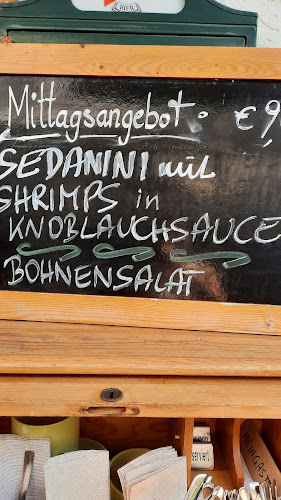 Mittagsangebot. € 9,
SEDANINI mit
SHRIMPS in
KNOBLAUCHSAUCE
BOHNENSALAT
serviert